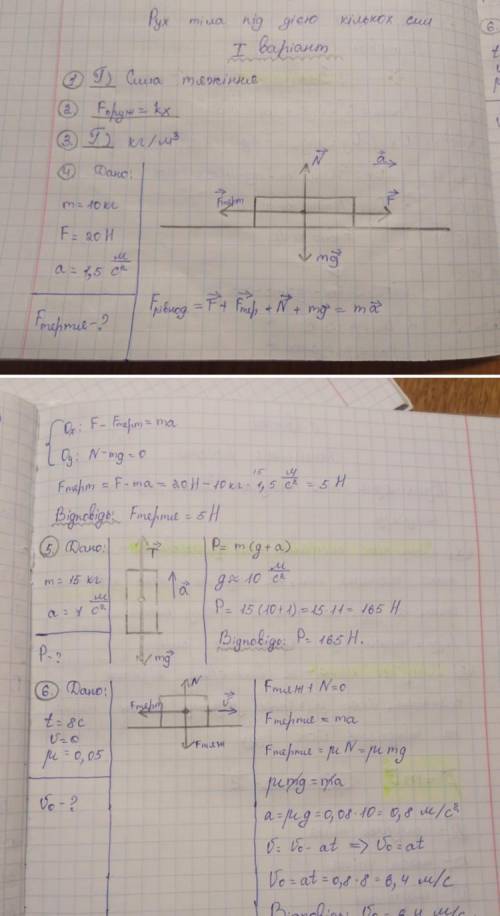 Рух тіла під дією кількох сил
I варіант
① Г) Сила тяжіння
② Fпруж = kx
③ Г) кг/м³
④ Дано:
m = 10 кг
F = 20 Н
a = 1,5 м/с²
Fтертя - ?
N
a
Fтерт
F
mg
Fрівнод = F + Fтер + N + mg = ma
Ox: F - Fтерт = ma
Oy: N - mg = 0
15
Fтерт = F - ma = 20 Н - 10 кг · 1,5 м/с² = 5 Н
Відповідь: Fтертя = 5 Н
⑤ Дано:
m = 15 кг
a = 1 м/с²
P - ?
T
a
mg
P = m(g + a)
g ≈ 10 м/с²
P = 15(10+1) = 15·11 = 165 Н.
Відповідь: P = 165 Н.
⑥ Дано:
t = 8 с
v = 0
μ = 0,05
v₀ - ?
N
Fтерт
v
Fтяж
Fтяж + N = 0
Fтертя = ma
Fтертя = μN = μmg
μmg = ma
a = μg = 0,08 · 10 = 0,8 м/с²
v = v₀ - at => v₀ = at
v₀ = at = 0,8 · 8 = 6,4 м/с
Відповідь: v₀ = 6,4 м/с
6